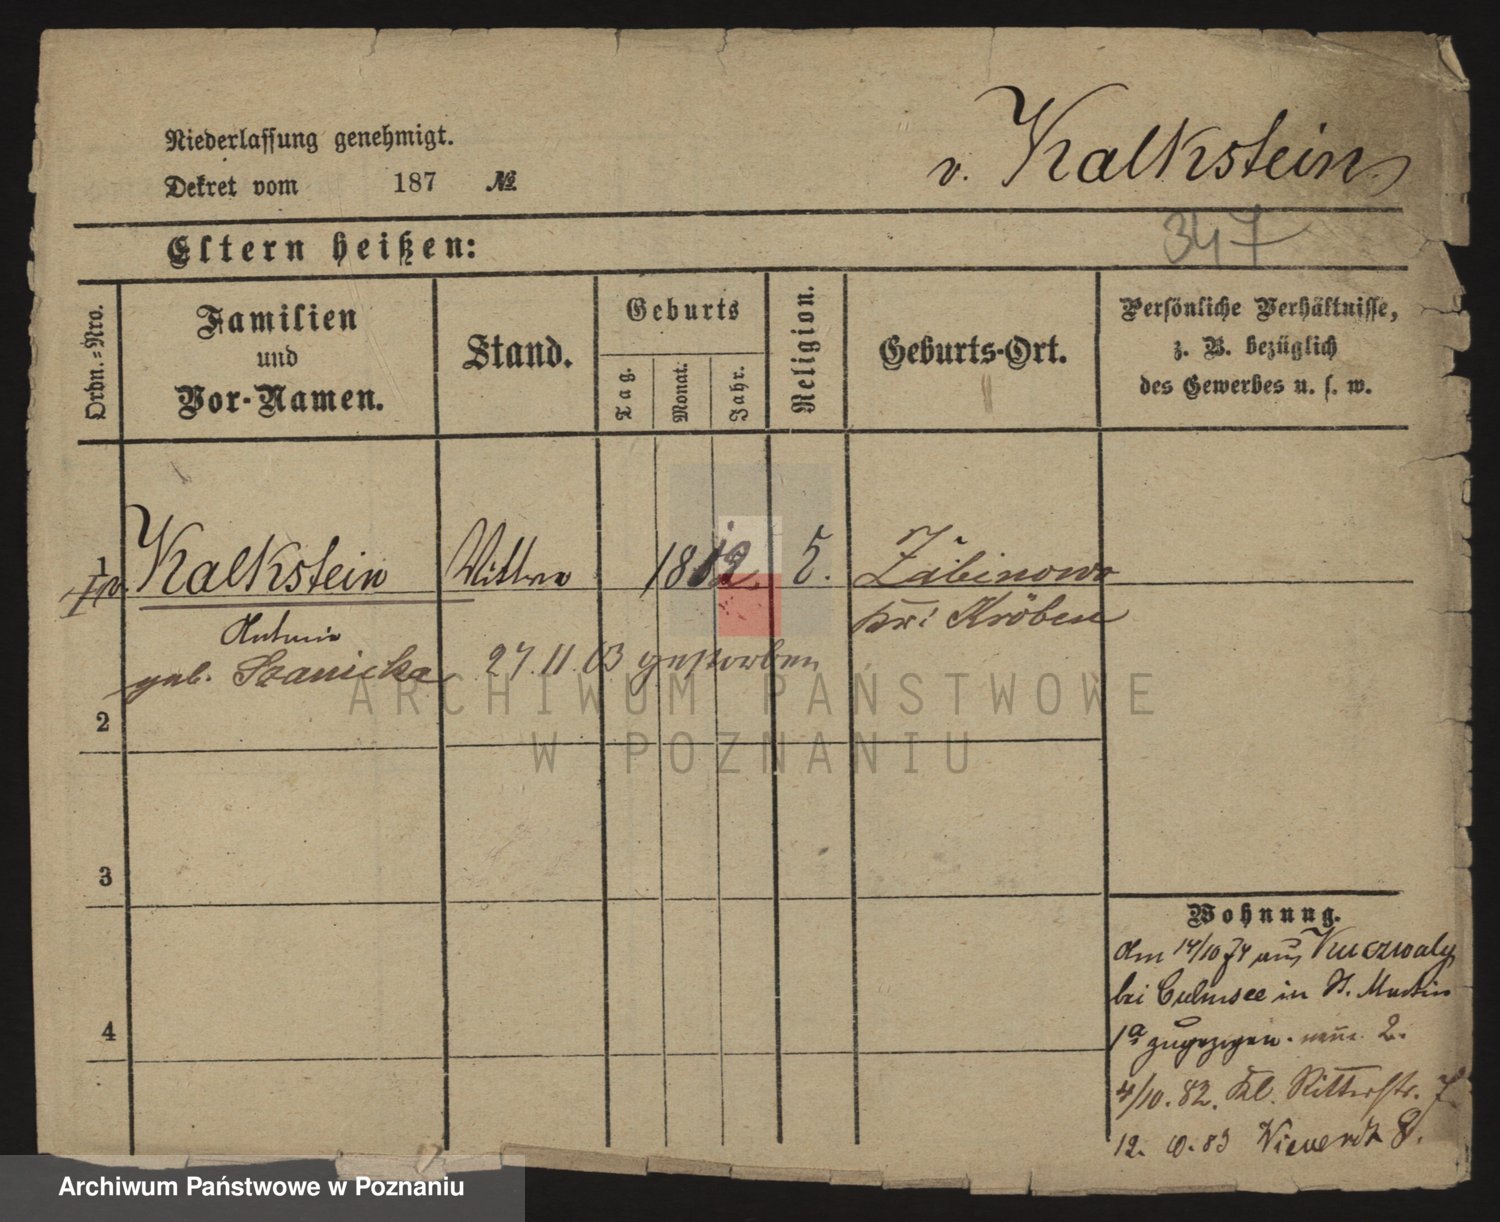 Niederlassung genehmigt.
Dekret vom 187 №
v. Kalkstein
347
Eltern heißen:
Ordn.=Nro.
Familien
und
Vor-Namen.
Stand.
Geburts
Tag.
Monat.
Jahr.
Religion.
Geburts-Ort.
Persönliche Verhältnisse,
z. B. bezüglich
des Gewerbes u. s. w.
1 v. Kalkstein Wittwe 18 Kr: Kröben
geb. 27.11.03 gestorben
2
3
4
Wohnung.
Am 14/10 74 aus Kuczwaly
bei Culmsee in St. Martin
1a zugezogen. 2.
4/10. 82. Kl. Ritterstr. 7
12. 83 8.
ARCHIWUM PAŃSTWOWE
W POZNANIU
Archiwum Państwowe w Poznaniu